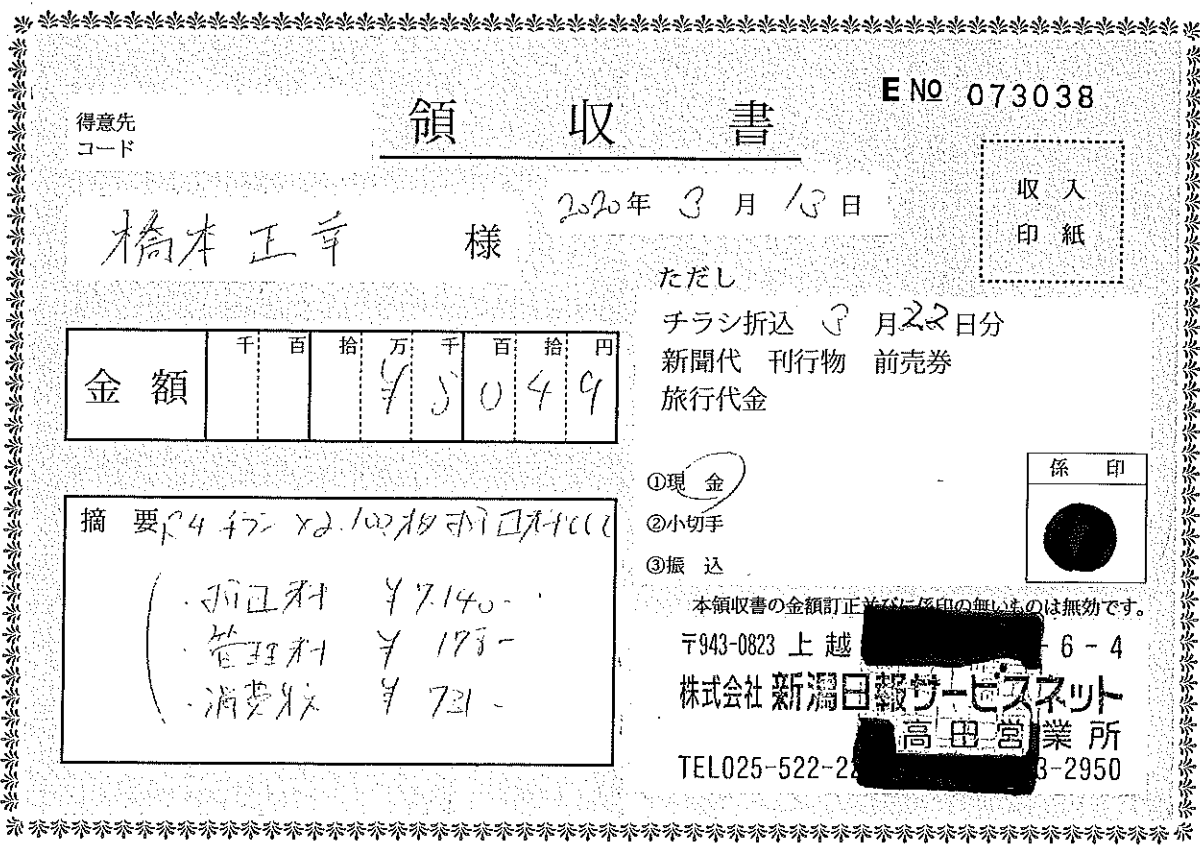 E NO 073038
得意先
コード
領収書
収入
印紙
2020年 3月 13日
橋本正幸 様
ただし
チラシ折込 3月22日分
新聞代 刊行物 前売券
旅行代金
金額
千 百 拾 万 千 百 拾 円
¥ 5 0 4 9
①現 金
②小切手
③振 込
係 印
摘 要 チラシ
折込料 ¥7.140-
管理料 ¥
消費税 ¥
本領収書の金額訂正並びに係印の無いものは無効です。
〒943-0823 上越 - 6 - 4
株式会社 新潟日報サービスネット
高田営業所
TEL025-522-2 3-2950